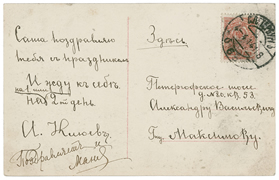 Саша поздравляю
тебя с праздником
И жду к себѣ
на 2й день
И.
Поздравляетъ и
Маня
Здѣсь
Петергофское шоссе
д № 20. кв. 53
Александру Васильевичу
Гну Максимову.